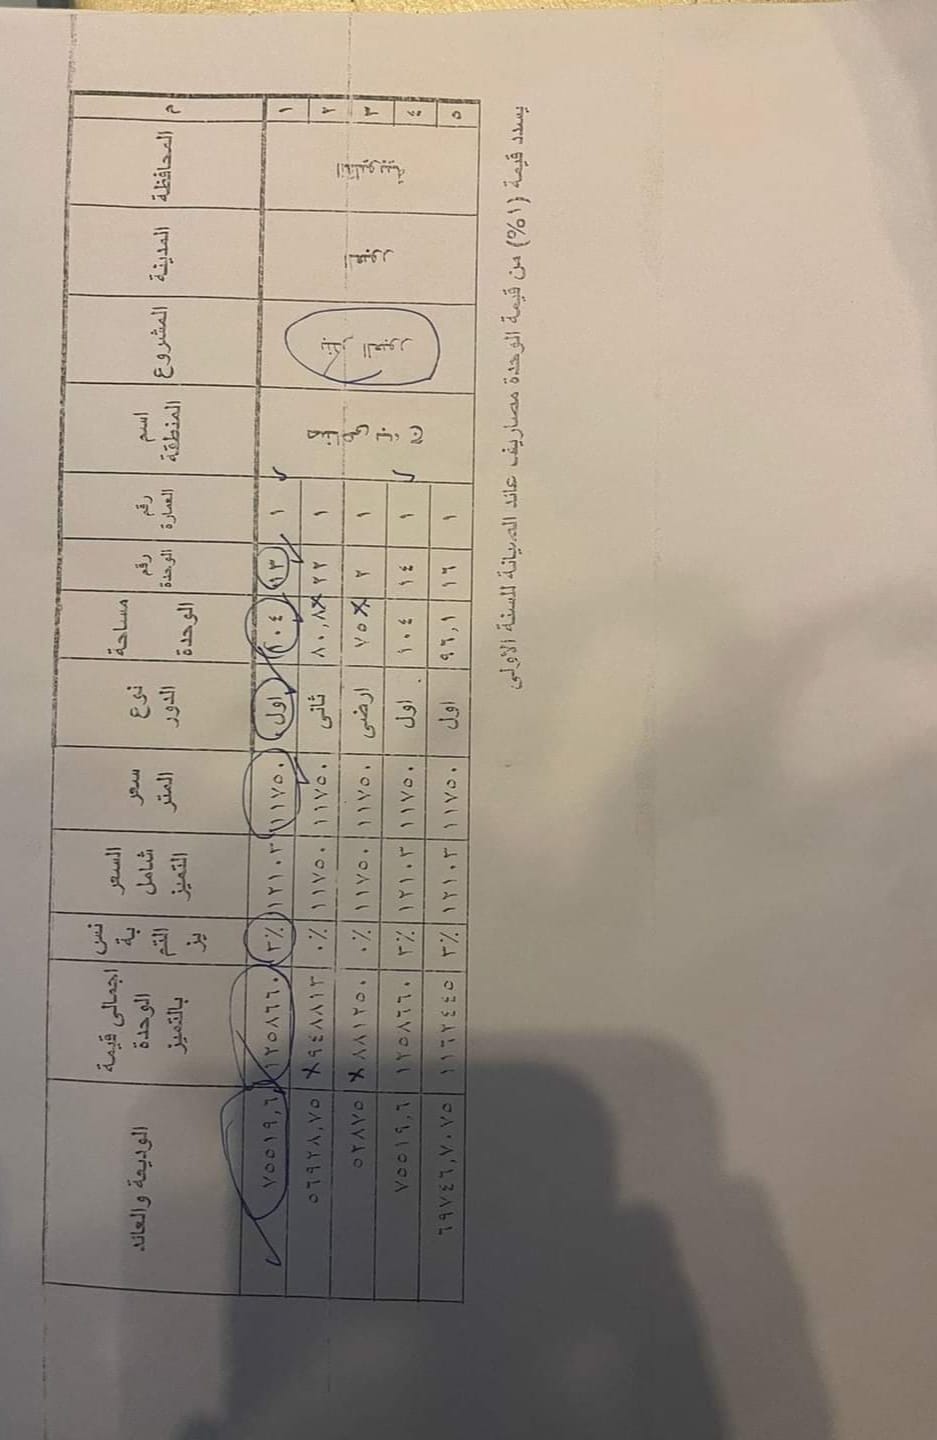 م المحافظة المدينة المشروع اسم المنطقة رقم العمارة رقم الوحدة مساحة الوحدة نوع الدور سعر المتر السعر شامل التميز نسبة التميز اجمالى قيمة الوحدة بالتميز الوديعة والعائد
١ ١ ١٣ ١٠٤ اول ١١٧٥٠ ١٢١٠٣ ٣% ١٢٥٨٦٦٠ ٧٥٥١٩,٦
٢ ١ ٢٢ ٨٠,٨ ثانى ١١٧٥٠ ١١٧٥٠ ٠% ٩٤٨٨١٣ ٥٦٩٢٨,٧٥
٣ ١ ٢ ٧٥ ارضى ١١٧٥٠ ١١٧٥٠ ٠% ٨٨١٢٥٠ ٥٢٨٧٥
٤ ١ ١٤ ١٠٤ اول ١١٧٥٠ ١٢١٠٣ ٣% ١٢٥٨٦٦٠ ٧٥٥١٩,٦
٥ ١ ١٦ ٩٦,١ اول ١١٧٥٠ ١٢١٠٣ ٣% ١١٦٢٤٤٥ ٦٩٧٤٦,٧٠٧٥
يسدد قيمة (١%) من قيمة الوحدة مصاريف عائد الصيانة للسنة الاولى